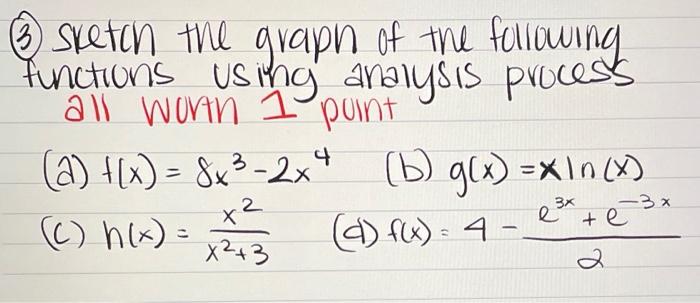 ③ sketch the graph of the following
functions using analysis process
all worth 1 point
(a) f(x) = 8x³ - 2x⁴ (b) g(x) = x ln(x)
(c) h(x) = x² / x²+3 (d) f(x) = 4 - e³ˣ + e⁻³ˣ / 2